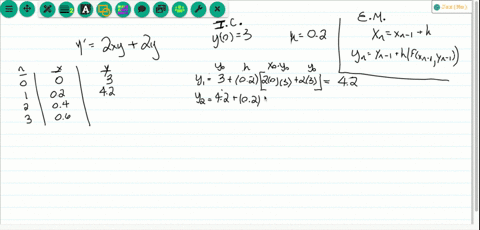 I.C.
y(0)=3
h = 0.2
E.M.
xₙ = xₙ₋₁ + h
yₙ = yₙ₋₁ + h(F(xₙ₋₁, yₙ₋₁))
y' = 2xy + 2y
n x y
0 0 3
1 0.2 4.2
2 0.4
3 0.6
y₀ h x₀·y₀ y₀
y₁ = 3 + (0.2)[2(0)(3) + 2(3)] = 4.2
y₂ = 4.2 + (0.2)